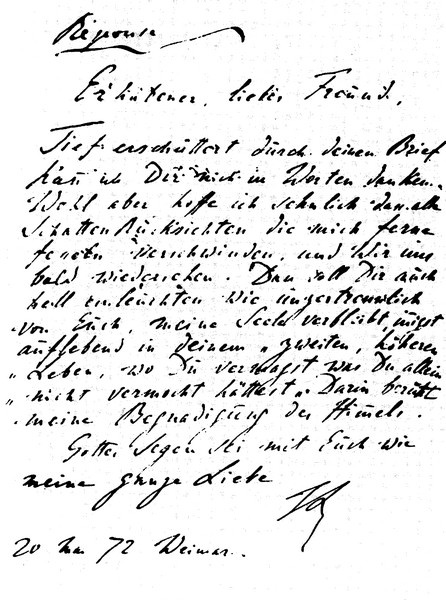 Réponse
Erhabener, lieber Freund,
Tief erschüttert durch deinen Brief
kann ich Dir nicht in Worten danken.
Wohl aber hoffe ich sehnlich dass alle
Schatten Rücksichten die mich ferne
verschwinden, und wir uns
bald wiedersehen. Dan soll Dir auch
hell einleuchten wie ungertrennlich
von Euch, meine Seele verbleibt innigst
auflebend in deinem „zweiten, höheren
„Leben, wo Du vermagst was Du allein
„nicht vermocht hättest". Darin beruht
meine Begnadigung des Himmels.
Gottes Segen sei mit Euch wie
meine ganze Liebe
20 Mai 72 Weimar.